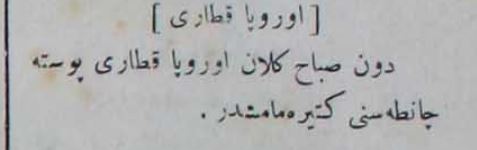 [ اوروپا قطاری ]
دون صباح كلان اوروپا قطاری پوسته
چانطه‌سنی كتیره‌مامشدر .